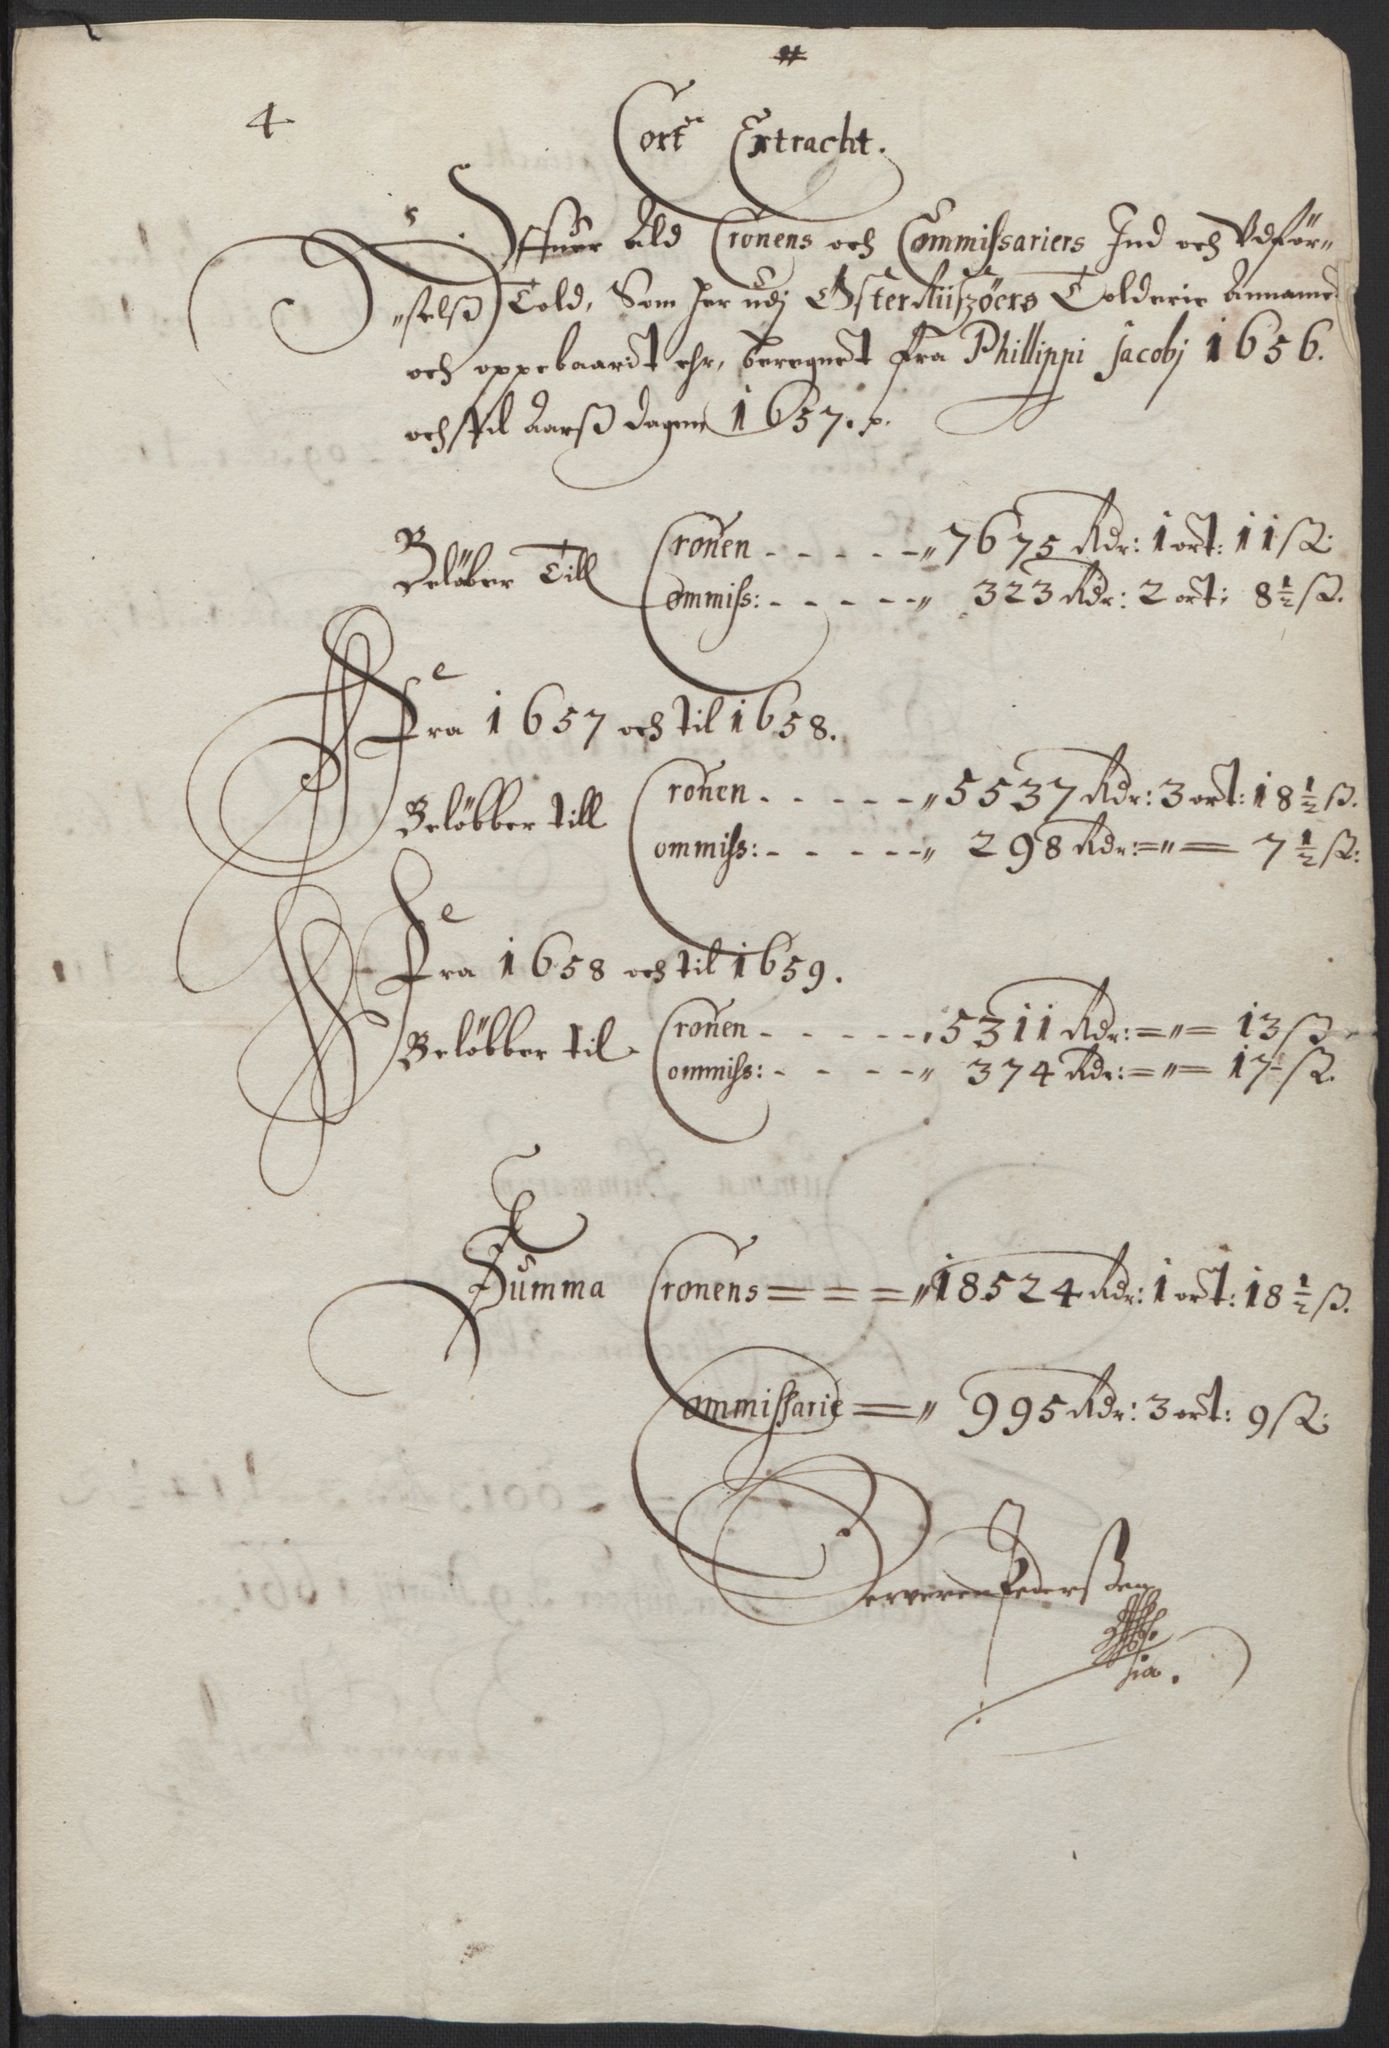 4
Cort Extracht.
Offuer Ald Cronens och Commissariers Ind och Udför„
„selß Told, Som her udj ØsterRiiszöers Tolderie Annamet
och oppebaardt ehr, beregnet fra Phillippi Jacobj 1656.
och til Aarß dagen 1657. p.
Belöber Till Cronen - - - - -„ 7675 Rdr: 1 ort: 11 ß:
Commiss: - - - - -„ 323 Rdr: 2 ort: 8 1/2 ß.
Fra 1657 och til 1658.
Belöbber till Cronen - - - - -„ 5537 Rdr: 3 ort: 18 1/2 ß.
Commiss: - - - - -„ 298 Rdr: = „ = 7 1/2 ß:
Fra 1658 och til 1659.
Belöbber til Cronen - - - - -„ 5311 Rdr: = „ = 13 ß
Commiss: - - - - -„ 374 Rdr: = „ = 17 ß.
Summa Cronens = = = „ 18524 Rdr: 1 ort: 18 1/2 ß.
Commissarie = „ 995 Rdr: 3 ort: 9 ß:
Pederßen